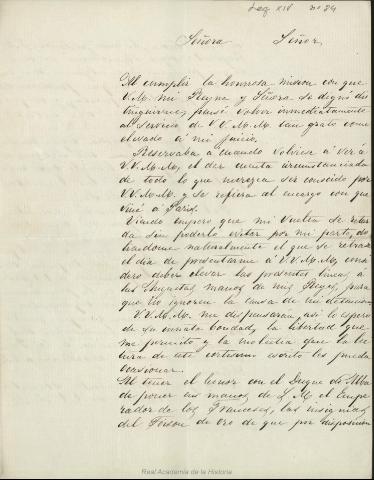 Leg. XIV nº 84
Señora Señor,
Al cumplir la honrosa mision con que
V.M. mi Reyna y Señora se dignó dis
tinguirme, pensé volver inmediatamente
al servicio de V.V.M.M. tan grato como
elevado á mi juicio.
Reservaba á cuando volviera á ver á
V.V.M.M. el dar cuenta circunstanciada
de todo lo que merezca ser conocido por
V.V.M.M. y se refiera al encargo con que
vine á Paris.
Viendo empero que mi vuelta se retar
da sin poderlo evitar por mi parte,
naturalmente el que se retrase
el dia de presentarme á V.V.M.M. consi
dero deber elevar las presentes lineas á
las Augustas manos de mis Reyes, para
que no ignoren la causa de mi detencion.
V.V.M.M. me dispensaran, asi lo espero
de su innata bondad, la libertad que
me permito y la molestia que la lec
tura de este cortisimo escrito les pueda
ocasionar.
Al tener el honor con el Duque de Alba
de poner en manos de S.M. el Empe
rador de los Franceses, las insignias
del Toison de oro de que por disposicion
Real Academia de la Historia